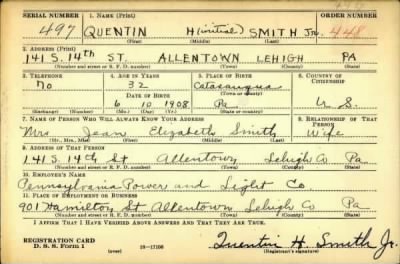 SERIAL NUMBER 1. NAME (Print) ORDER NUMBER
497 QUENTIN H(initial) SMITH Jr. 448
(First) (Middle) (Last)
2. ADDRESS (Print)
141 S. 14th ST. ALLENTOWN LEHIGH PA
(Number and street or R. F. D. number) (Town) (County) (State)
3. TELEPHONE 4. AGE IN YEARS 5. PLACE OF BIRTH 6. COUNTRY OF CITIZENSHIP
No 32 Catasauqua
DATE OF BIRTH (Town or county)
6 10 1908 Pa U. S.
(Exchange) (Number) (Mo.) (Day) (Yr.) (State or country)
7. NAME OF PERSON WHO WILL ALWAYS KNOW YOUR ADDRESS 8. RELATIONSHIP OF THAT PERSON
Mrs Jean Elizabeth Smith Wife
(Mr., Mrs., Miss) (First) (Middle) (Last)
9. ADDRESS OF THAT PERSON
141 S. 14th St Allentown Lehigh Co Pa
(Number and street or R. F. D. number) (Town) (County) (State)
10. EMPLOYER'S NAME
Pennsylvania Power and Light Co
11. PLACE OF EMPLOYMENT OR BUSINESS
901 Hamilton St Allentown Lehigh Co Pa
(Number and street or R. F. D. number) (Town) (County) (State)
I AFFIRM THAT I HAVE VERIFIED ABOVE ANSWERS AND THAT THEY ARE TRUE.
REGISTRATION CARD
D. S. S. Form 1 (over) 16—17105 Quentin H. Smith Jr.
(Registrant's signature)